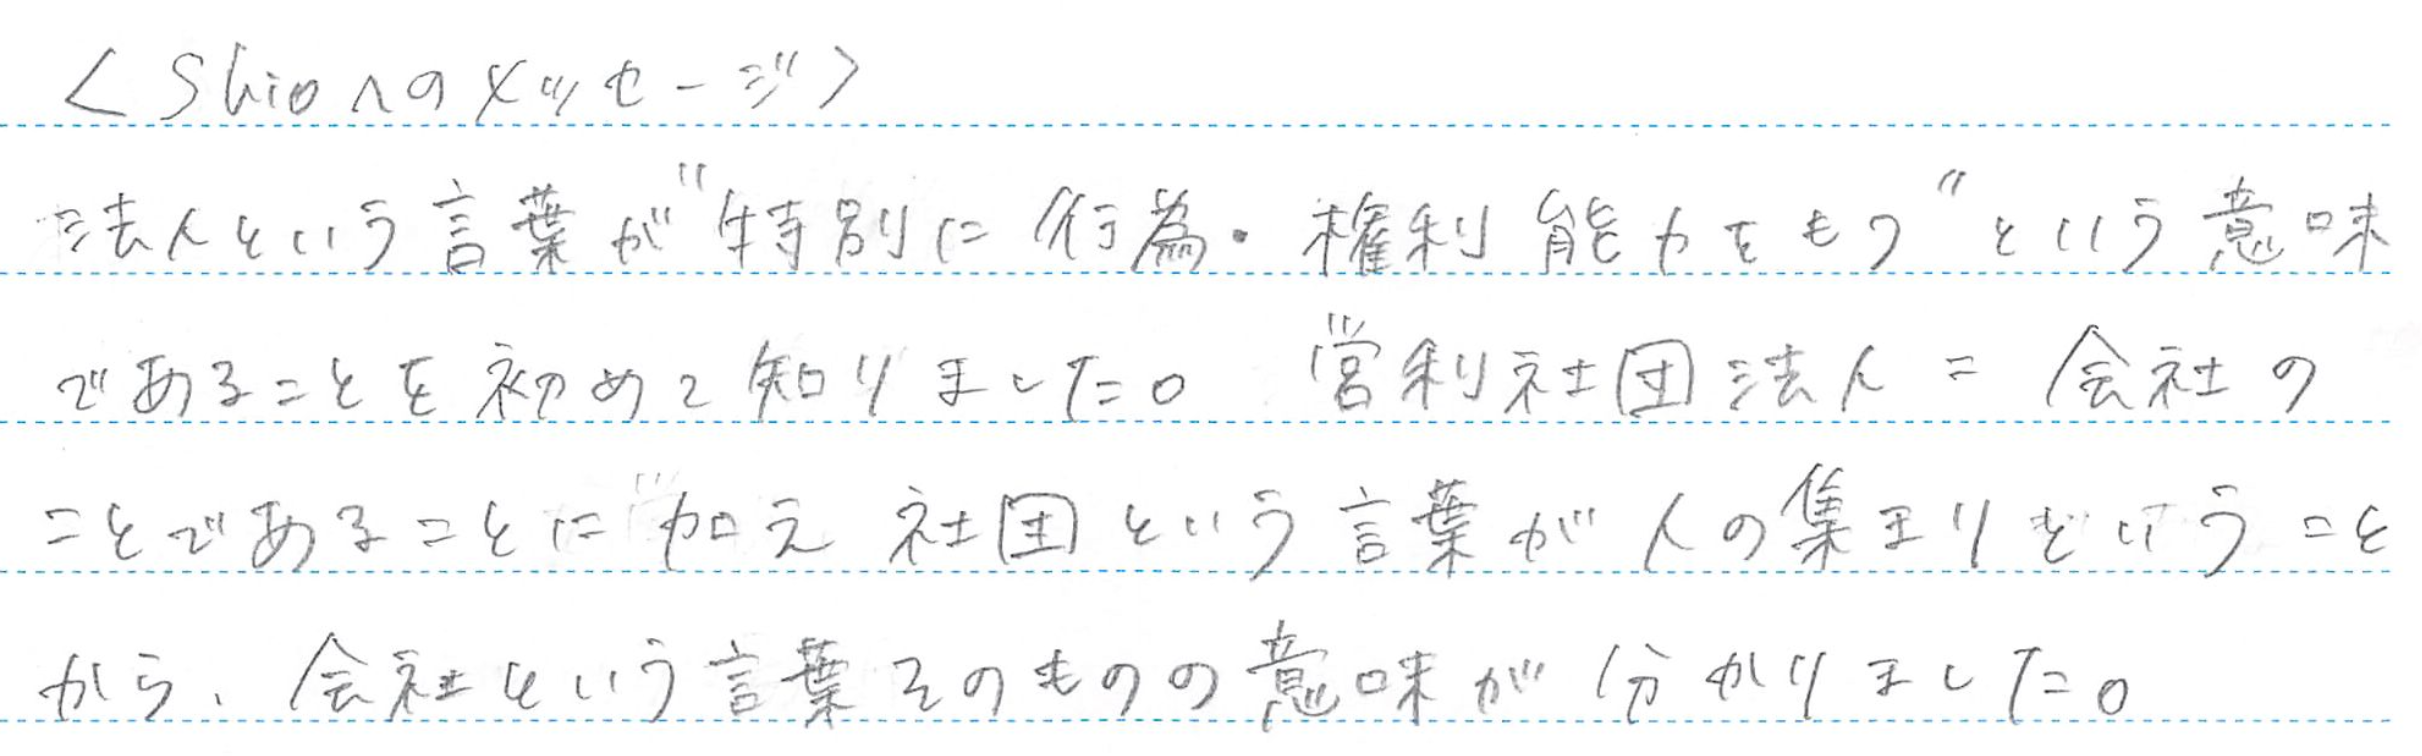 <Shioへのメッセージ>
法人という言葉が"特別に行為・権利能力をもつ"という意味
であることを初めて知りました。営利社団法人=会社の
ことであることに加え社団という言葉が人の集まりということ
から、会社という言葉そのものの意味が分かりました。